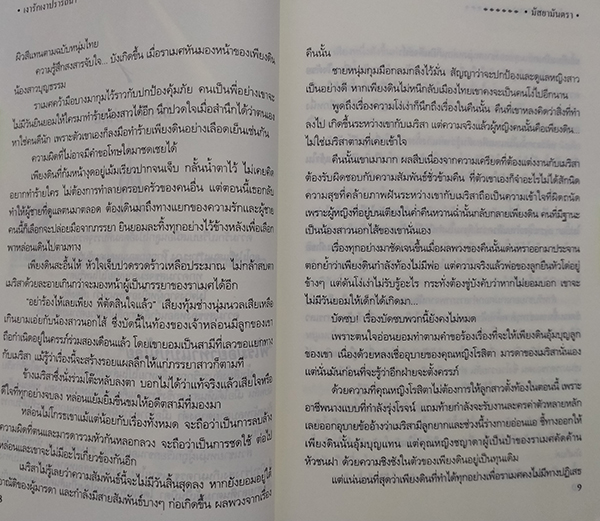 • เงารักเงาปรารถนา •
ผิวสีแทนตามฉบับหนุ่มไทย
ความรู้สึกสงสารจับใจ... บังเกิดขึ้น เมื่อราเมศหันมองหน้าของเพียงดิน
น้องสาวบุญธรรม
ราเมศคว้ามือบางมากุมไว้ราวกับปกป้องคุ้มภัย คนเป็นพี่อย่างเขาจะ
ไม่มีวันยินยอมให้ใครมาทำร้ายน้องสาวได้อีก นึกปวดใจเมื่อสำนึกได้ว่าตนเอง
หาใช่คนดีนัก เพราะตัวเขาเองก็ลงมือทำร้ายเพียงดินอย่างเลือดเย็นเช่นกัน
ความผิดที่ไม่อาจมีคำขอโทษใดมาชดเชยได้
เพียงดินที่ก้มหน้างุดอยู่เม้มเรียวปากจนเจ็บ กลั้นน้ำตาไว้ ไม่เคยคิด
อยากทำร้ายใคร ไม่ต้องการทำลายครอบครัวของคนอื่น แต่ตอนนี้เธอกลับ
ทำให้ผู้ชายที่ดูแลตนมาตลอด ต้องเดินมาถึงทางแยกของความรักและผู้ชาย
คนนี้ก็เลือกจะปล่อยมือจากภรรยา ยินยอมละทิ้งทุกอย่างไว้ข้างหลังเพื่อเลือก
พาหล่อนเดินไปตามทาง
เพียงดินสะอื้นไห้ หัวใจเจ็บปวดรวดร้าวเหลือประมาณ ไม่กล้าสบตา
เมริสาด้วยละอายเกินกว่าจะมองหน้าผู้เป็นภรรยาของราเมศได้อีก
“อย่าร้องไห้เลยเพียง พี่ตัดสินใจแล้ว” เสียงทุ้มช่างนุ่มนวลเสียเหลือ
เกินยามเอ่ยกับน้องสาวนอกไส้ ซึ่งบัดนี้ในท้องของเจ้าหล่อนมีลูกของเขา
ถือกำเนิดอยู่ในครรภ์ร่วมสองเดือนแล้ว โดยเขายอมเป็นสามีที่เลวขอแยกทาง
กับเมริสา แม้รู้ว่าเรื่องนี้จะสร้างรอยแผลลึกให้แก่ภรรยาสาวก็ตามที
ข้างเมริสาซึ่งนั่งร่วมโต๊ะหลับลงตา บอกไม่ได้ว่าแท้จริงแล้วเสียใจหรือ
ดีใจที่ทุกอย่างจบลง หล่อนแย้มยิ้มขื่นขมให้อดีตสามีที่มองมา
หล่อนไม่โกรธเขาแม้แต่น้อยกับเรื่องทั้งหมด จะถือว่าเป็นการลบล้าง
ความผิดที่ตนและมารดารวมหัวกันหลอกลวง จะถือว่าเป็นการชดใช้ ต่อไป
หล่อนและเขาจะไม่มีอะไรเกี่ยวข้องกันอีก
เมริสาไม่รู้เลยว่าความสัมพันธ์นี้จะไม่มีวันสิ้นสุดลง หากยังยอมอยู่ใต้
อาณัติของผู้มารดา และกำลังมีสายสัมพันธ์บางๆ ก่อเกิดขึ้น ผลพวงจากเรื่อง
8
• มัสยามันตรา •
คืนนั้น
ชายหนุ่มกุมมือกลมกลึงไว้มั่น สัญญาว่าจะปกป้องและดูแลหญิงสาว
เป็นอย่างดี หากเพียงดินไม่หนีกลับเมืองไทยเขาคงจะเป็นคนโง่ไปอีกนาน
พูดถึงเรื่องความโง่เง่าก็นึกถึงเรื่องในคืนนั้น คืนที่เขาหลงคิดว่าสิ่งที่ทำ
ลงไป เกิดขึ้นระหว่างเขากับเมริสา แต่ความจริงแล้วผู้หญิงคนนั้นคือเพียงดิน...
ไม่ใช่เมริสาตามที่เคยเข้าใจ
คืนนั้นเขาเมามาก ผลสืบเนื่องจากความเครียดที่ต้องแต่งงานกับเมริสา
ต้องรับผิดชอบกับความสัมพันธ์ชั่วข้ามคืน ที่ตัวเขาเองก็จำอะไรไม่ได้สักนิด
ความสุขที่คล้ายภาพฝันระหว่างเขากับเมริสาถือเป็นความเข้าใจที่ผิดถนัด
เพราะผู้หญิงที่อยู่บนเตียงในค่ำคืนหวานฉ่ำนั้นกลับกลายเพียงดิน คนที่มีฐานะ
เป็นน้องสาวนอกไส้ของเขานั่นเอง
เรื่องทุกอย่างมาชัดเจนขึ้นเมื่อผลพวงของคืนนั้นเด่นหราออกมาประจาน
ตอกย้ำว่าเพียงดินกำลังท้องไม่มีพ่อ แต่ความจริงแล้วพ่อของลูกยืนหัวโด่อยู่
ข้างๆ แต่ดันโง่เง่าไม่รับรู้อะไร กระทั่งต้องขู่บังคับว่าหากไม่ยอมบอก เขาจะ
ไม่มีวันยอมให้เด็กได้เกิดมา...
บัดซบ! เรื่องบัดซบพวกนี้ยังคงไม่หมด
เพราะตนใจอ่อนยอมทำตามคำขอร้องเรื่องที่จะให้เพียงดินอุ้มบุญลูก
ของเขา เนื่องด้วยหลงเชื่ออุบายของคุณหญิงโรสิตา มารดาของเมริสานั่นเอง
แต่นั่นมันก่อนที่จะรู้ว่าอีกฝ่ายจะตั้งครรภ์
ด้วยความที่คุณหญิงโรสิตาไม่ต้องการให้ลูกสาวตั้งท้องในตอนนี้ เพราะ
อาชีพนางแบบที่กำลังรุ่งโรจน์ แถมท้ายกำลังจะรับงานละครค่าตัวหลายหลัก
เลยออกอุบายข้ออ้างว่าเมริสามีลูกยากและช่วงนี้ร่างกายอ่อนแอ ชี้ทางออกให้
เพียงดินนั้นอุ้มบุญแทน แต่คุณหญิงชญาดาผู้เป็นป้าของราเมศคัดค้าน
หัวชนฝา ด้วยความชิงชังในตัวของเพียงดินอยู่เป็นทุนเดิม
แต่แน่นอนที่สุดว่าเพียงดินที่ทำได้ทุกอย่างเพื่อราเมศคงไม่มีทางปฏิเสธ
9